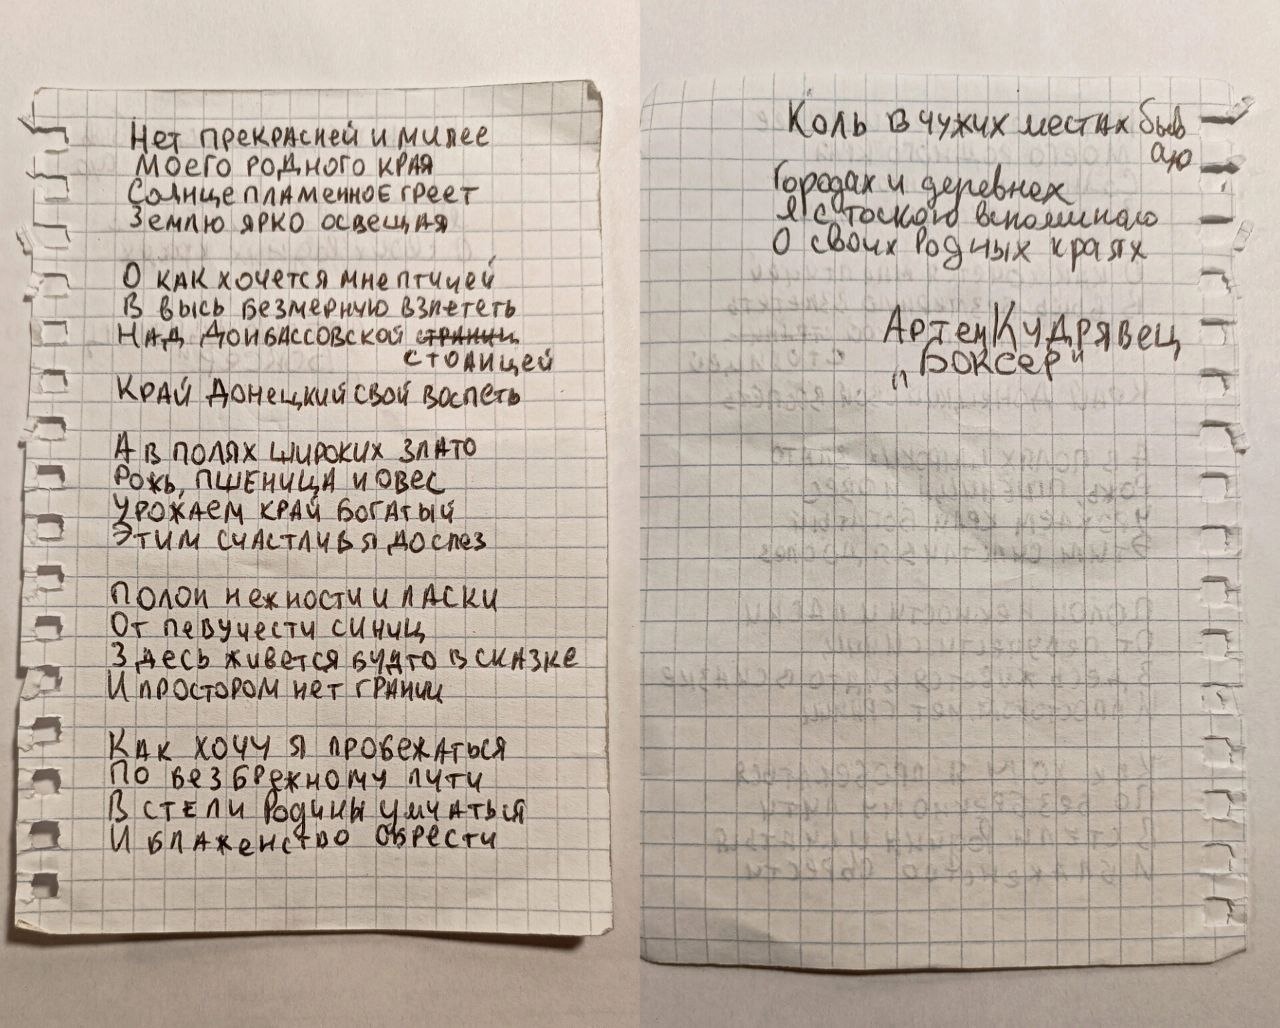 Нет прекрасней и милее
Моего родного края
Солнце пламенное греет
Землю ярко освещая
О как хочется мне птицей
В высь безмерную взлететь
Над Донбассовской границ
столицей
Край Донецкий свой воспеть
А в полях широких злато
Рожь, пшеница и овес
Урожаем край богатый
Этим счастлив я до слез
Полон нежности и ласки
От певучести синиц
Здесь живется будто в сказке
И просторам нет границ
Как хочу я пробежаться
По безбрежному пути
В степи Родины умчаться
И блаженство обрести
Коль в чужих местах быв
аю
Городах и деревнях
Я с тоскою вспоминаю
О своих родных краях
Артем Кудрявец
"Боксер"